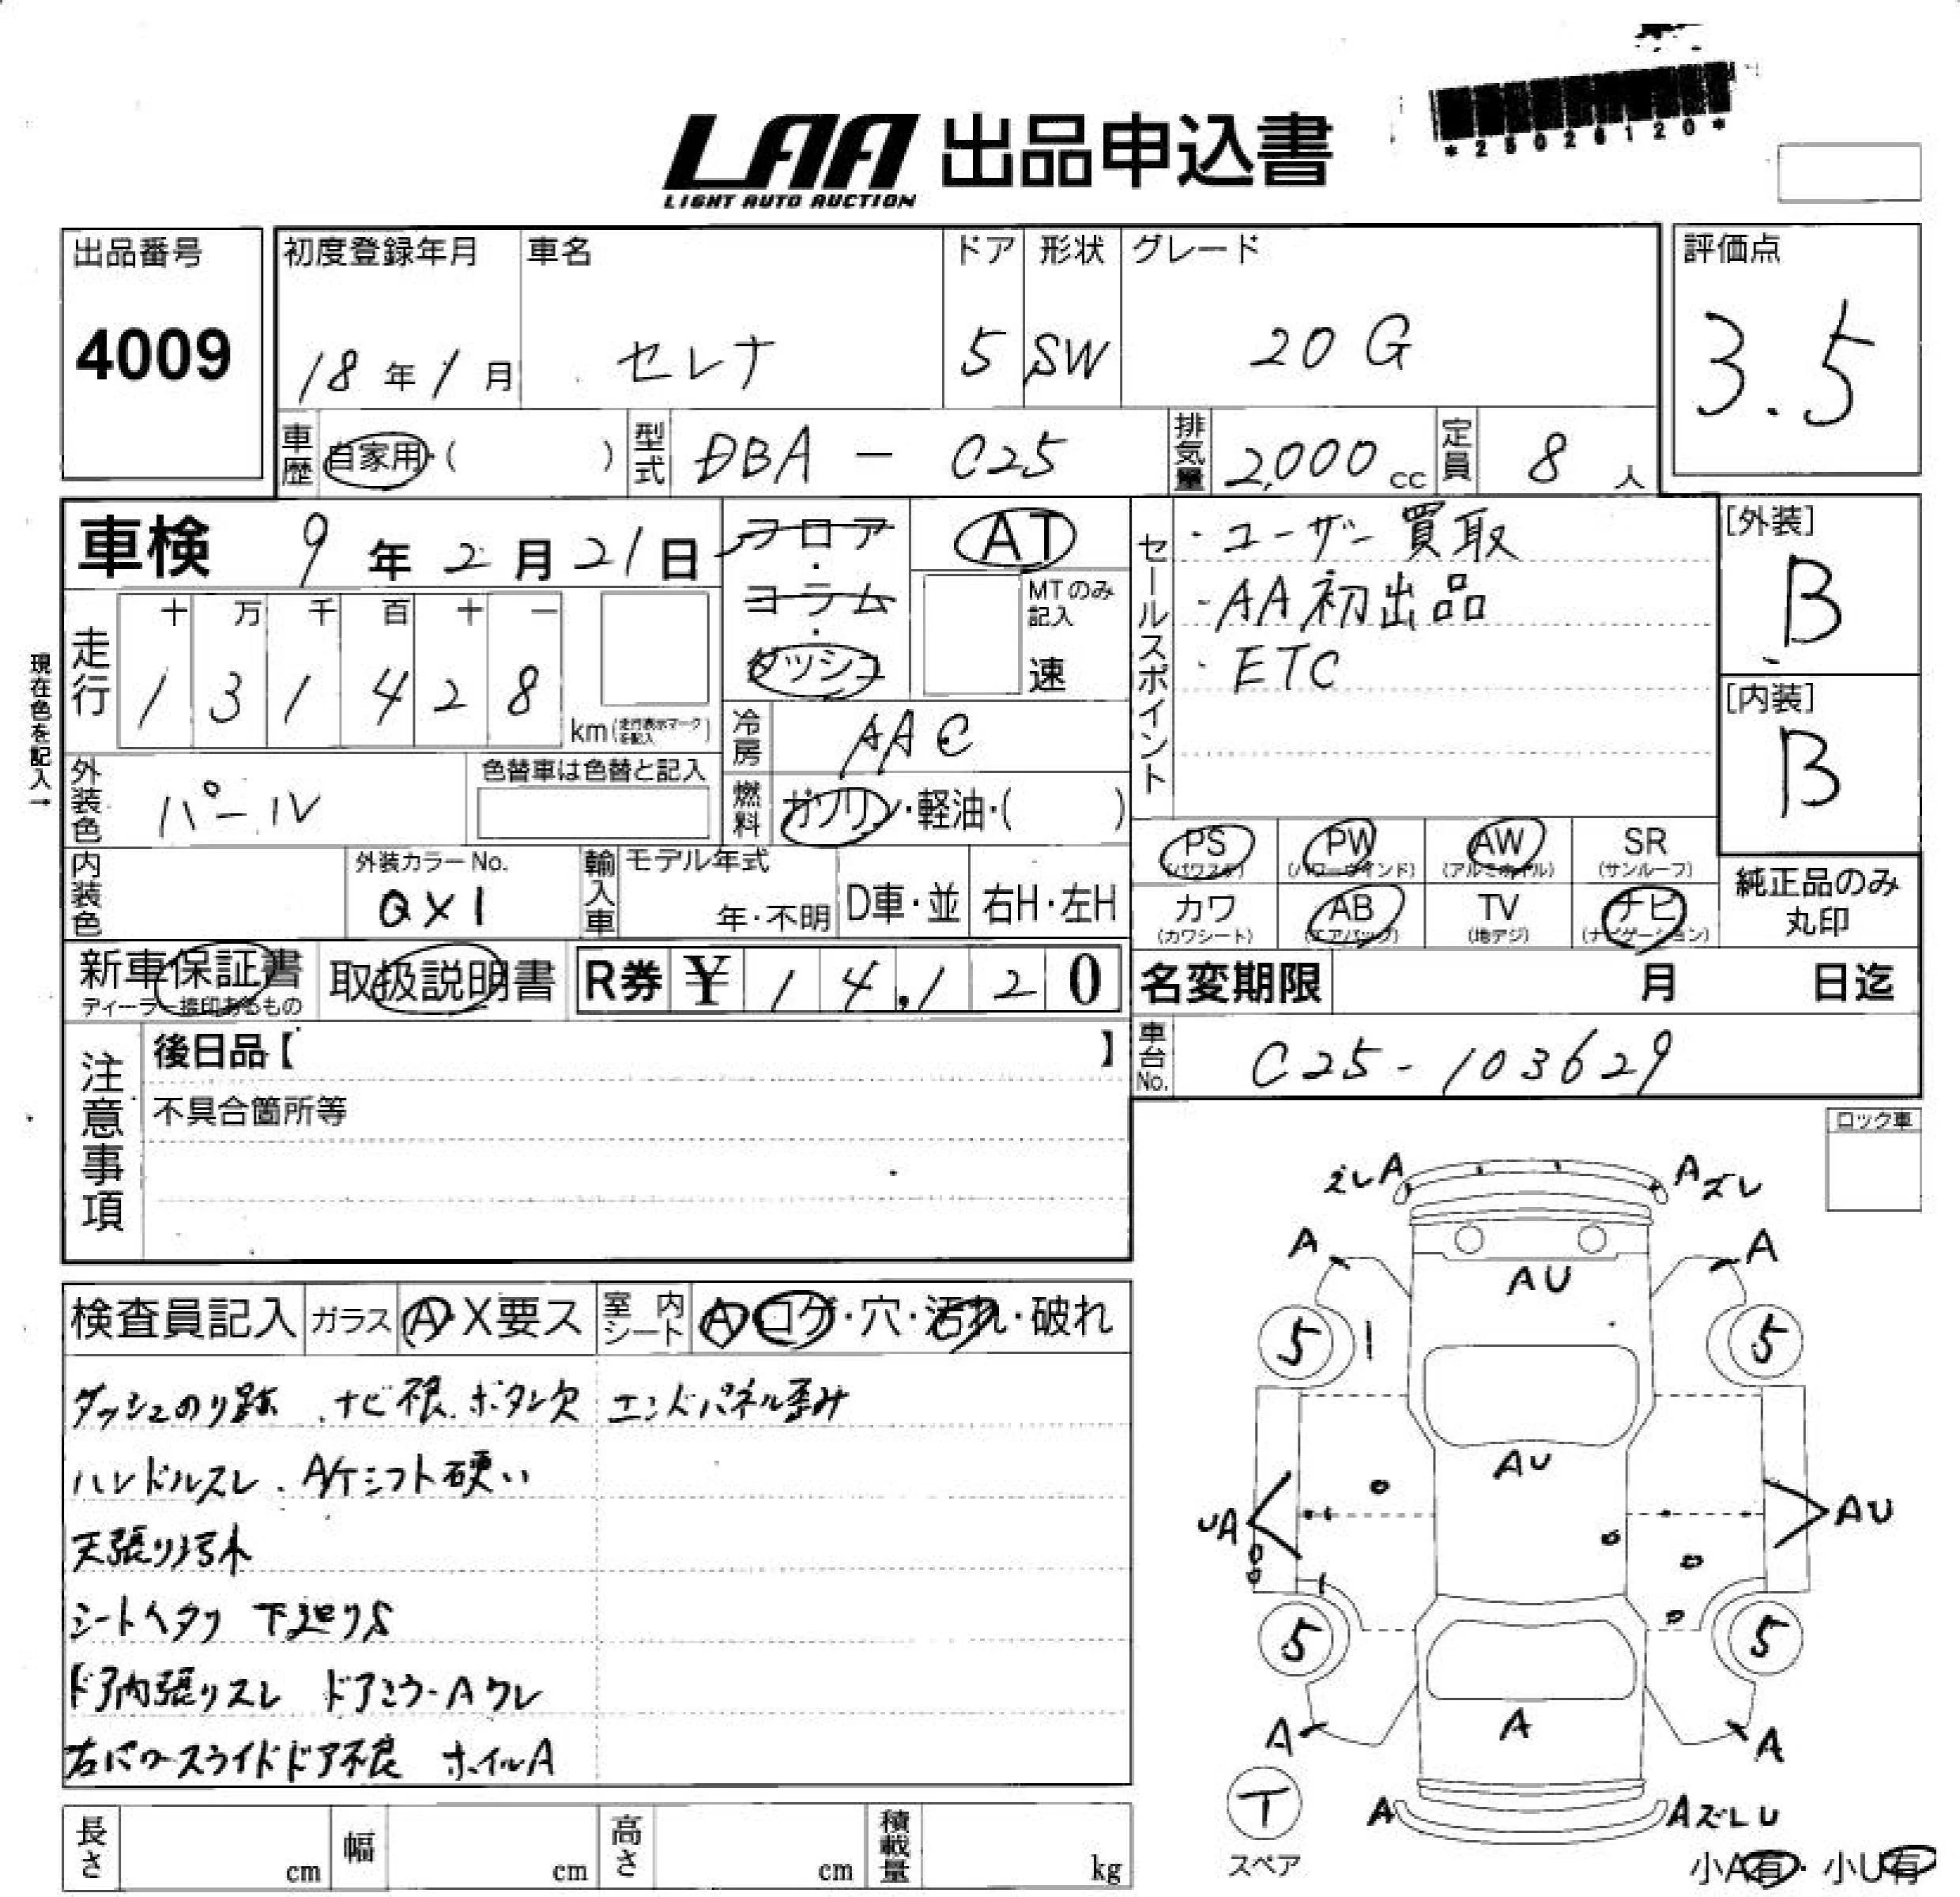 LAA 出品申込書
LIGHT AUTO AUCTION
*25026120*
出品番号
4009
初度登録年月 車名 ドア 形状 グレード
18年1月 セレナ 5 SW 20G
評価点
3.5
車歴 自家用・( ) 型式 DBA - C25 排気量 2,000cc 定員 8人
車検 9年2月21日
フロア・コラム・ダッシュ
AT
MTのみ記入
速
走行
十 万 千 百 十 一
1 3 1 4 2 8
km(走行表示マークを記入)
現在色を記入→
冷房 AAC
外装色 パール
色替車は色替と記入
燃料 ガソリン・軽油・( )
内装色
外装カラーNo.
QX1
輸入車 モデル年式
年・不明 D車・並 右H・左H
セールスポイント
・ユーザー買取
・AA初出品
・ETC
[外装]
B
[内装]
B
PS PW AW SR
(パワステ) (パワーウインド) (アルミホイル) (サンルーフ)
カワ AB TV ナビ
(カワシート) (エアバック) (地デジ) (ナビゲーション)
純正品のみ
丸印
新車保証書 取扱説明書 R券 ¥ 14,120
ディーラー捺印あるもの
名変期限 月 日迄
注意事項
後日品【 】
不具合箇所等
車台No. C25-103629
ロック車
検査員記入 ガラス A・X要ス 室内シート A・コゲ・穴・汚れ・破れ
ダッシュのり跡 ナビ不良.ボタン欠 エンドパネル歪み
ハンドルスレ.A/Tシフト硬い
天張り汚れ
シートヘタリ 下廻りS
ドア内張りスレ ドアミラーAワレ
右パワースライドドア不良 ホイルA
ズレA Aズレ
A A
AU
5 5
AU
UA AU
5 5
A A A
T
スペア
A AズレU
小A有・小U有
長さ cm 幅 cm 高さ cm 積載量 kg